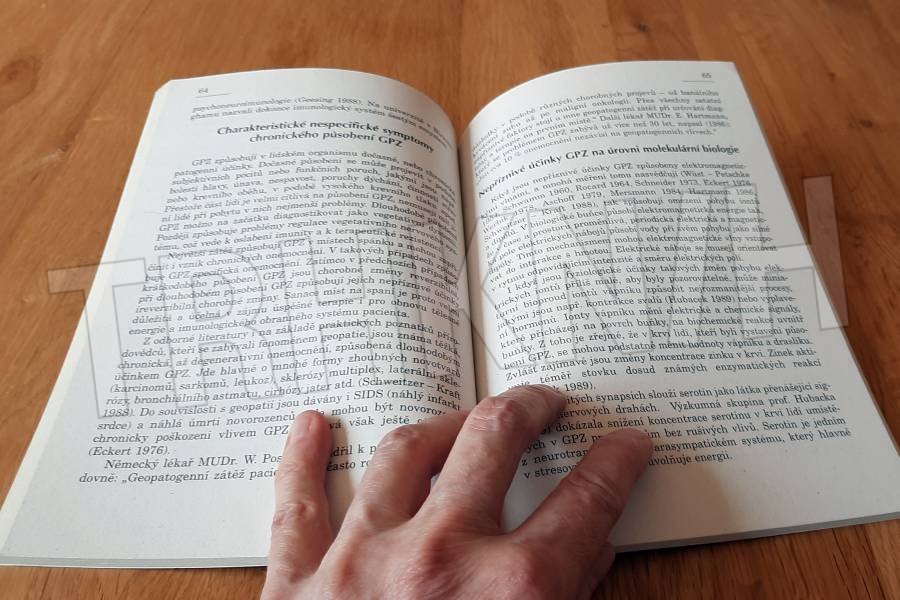 64
psychoneuroimunologie (Geesing 1988). Na univerzitě v
ghamu nazvali dokonce imunologický systém šestým
Charakteristické nespecifické symptomy
chronického působení GPZ
GPZ způsobují v lidském organismu dočasné, nebo
patogenní účinky. Dočasné působení se může projevit v
subjektivních pocitů nebo funkčních poruch, jakými jsou
bolesti hlavy, únava, nespavost, poruchy dýchání, činnosti
nebo krevního oběhu, v podobě vysokého krevního tlaku
Přestože část lidí je velmi citlivá na působení GPZ, nemusejí
ní lidé při pobytu v nich nejmenší problémy. Dlouhodobé působení
GPZ možno na začátku diagnostikovat jako vegetativní
Později způsobuje problémy regulace vegetativního nervového
tému, což vede k oslabení imunity a k terapeutické rezistenci.
Největší zátěž způsobují GPZ v místech spánku a mohou
činit i vznik chronických onemocnění. V takových případech
GPZ specifická onemocnění. Zatímco v předchozích případech
krátkodobého působení GPZ jsou chorobné změny reverzibilní,
při dlouhodobém působení GPZ způsobují jejich nepříznivé účinky
irreverzibilní chorobné změny. Sanace míst na spaní je proto velmi
důležitá a účelná v zájmu úspěšné terapie i pro obnovu tělesné
energie a imunologického obranného systému pacienta.
Z odborné literatury i na základě praktických poznatků
dovědců, kteří se zabývali fenoménem geopatie, jsou známa těžká,
chronická, až degenerativní onemocnění, způsobená dlouhodobým
účinkem GPZ. Jde hlavně o mnohé formy zhoubných novotvarů
(karcinomů, sarkomů, leukóz), sklerózy multiplex, laterální skle-
rózy, bronchiálního astmatu, cirhózy jater atd. (Schweitzer – Kraft
1988). Do souvislosti s geopatií jsou dávány i SIDS (náhlý infarkt
srdce) a náhlá úmrtí novorozenců mohou být novoroz
chronicky poškozeni vlivem GPZ však ještě
(Eckert 1976).
Německý lékař MUDr. W. Pos dřil k p
dovně: „Geopatogenní zátěž pacie často
65
v podobě různých chorobných projevů – od banálního
zubu až po maligní onkologii. Přes všechny ostatní
faktory stojí u mne geopatogenní zátěž při určování
na prvním místě.“ Další lékař MUDr. E. Hartmann,
problémem GPZ zabývá už více než 30 let, nepsal (1986):
10 % onemocnění nezávisí na geopatogenních vlivech.“
Nepříznivé účinky GPZ na úrovni molekulární biologie
Když jsou nepříznivé účinky GPZ způsobeny elektromagnetic-
a mnohá měření tomu nasvědčují (Wüst – Petschke
Schwamm 1960, Rocard 1964, Schneider 1973, Eckert 1976,
Aschoff 1979, Mersmann 1984, Hartmann 1986,
Kraft 1988), tak způsobují omezení pohybu iontů
V prostoru buňce působí elektromagnetická energie tak,
čase a prostoru proměnná, periodická elektrická a magnetic-
pole elektrických nábojů působí vody při svém pohybu jako silné
pole. Tímto mechanismem mohou elektromagnetické vlny vstupo-
vat do interakce s hmotou. Elektrické náboje se musejí orientovat
v rytmu odpovídajícím intenzitě i směru elektrických polí.
I když jsou fyziologické účinky takových změn pohybu elek-
tických iontů příliš malé, aby byly pozorovatelné, může minia-
turní bioproud iontů vápníku způsobit nejrozmanitější procesy,
jakými jsou např. kontrakce svalů (Hubacek 1989) nebo vyplave-
ní hormonů. Ionty vápníku mění elektrické a chemické signály,
které přicházejí na povrch buňky, na biochemické reakce uvnitř
buňky. Z toho je zřejmé, že v krvi lidí, kteří byli vystaveni půso-
bení GPZ, se mohou podstatně měnit hodnoty vápníku a draslíku.
Zvlášť zajímavé jsou změny koncentrace zinku v krvi. Zinek akti-
vuje téměř stovku dosud známých enzymatických reakcí
1989).
itých synapsích slouží serotin jako látka přenášející sig-
nervových drahách. Výzkumná skupina prof. Hubacka
) dokázala snížení koncentrace serotinu v krvi lidí umístě-
ných v GPZ pr ům bez rušivých vlivů. Serotin je jedním
z neurotran arasympatickém systému, který hlavně
v stresov volňuje energii.